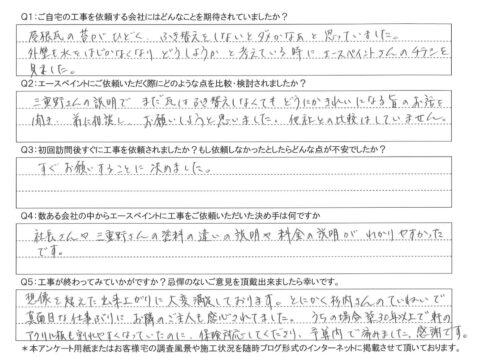 Q1:ご自宅の工事を依頼する会社にはどんなことを期待されていましたか？
屋根瓦の苔がひどく、ふき替えをしないとダメかなぁと思っていました。
外壁も水をはじかなくなり どうしようかと考えている時に エースペイントさんのチラシを
見ました。
Q2:エースペイントにご依頼いただく際にどのような点を比較・検討されましたか？
三重野さんの説明で まだ瓦はふき替えしなくても どうにかきれいになる旨のお話を
聞き 、 お願いしようと思いました。他社との比較はしていません。
Q3:初回訪問後すぐに工事を依頼されましたか？もし依頼しなかったとしたらどんな点が不安でしたか？
すぐお願いすることに決めました。
Q4:数ある会社の中からエースペイントに工事をご依頼いただいた決め手は何ですか
社長さんや三重野さんの塗料の違いの説明や料金の説明がわかりやすかった
です。
Q5:工事が終わってみていかがですか？忌憚のないご意見を頂戴出来ましたら幸いです。
想像を超えた出来上がりに大変満足しております。とにかく杉内さんのていねいで
真面目な仕事ぶりに お隣のご主人も感心されてました。 うちの場合築30年以上で軒の
アクリル板も割れやすくなっていたのに、保険対応してくださり、予算内で済みました。感謝です。
*本アンケート用紙またはお客様宅の調査風景や施工状況を随時ブログ形式のインターネットに掲載させて頂いております。